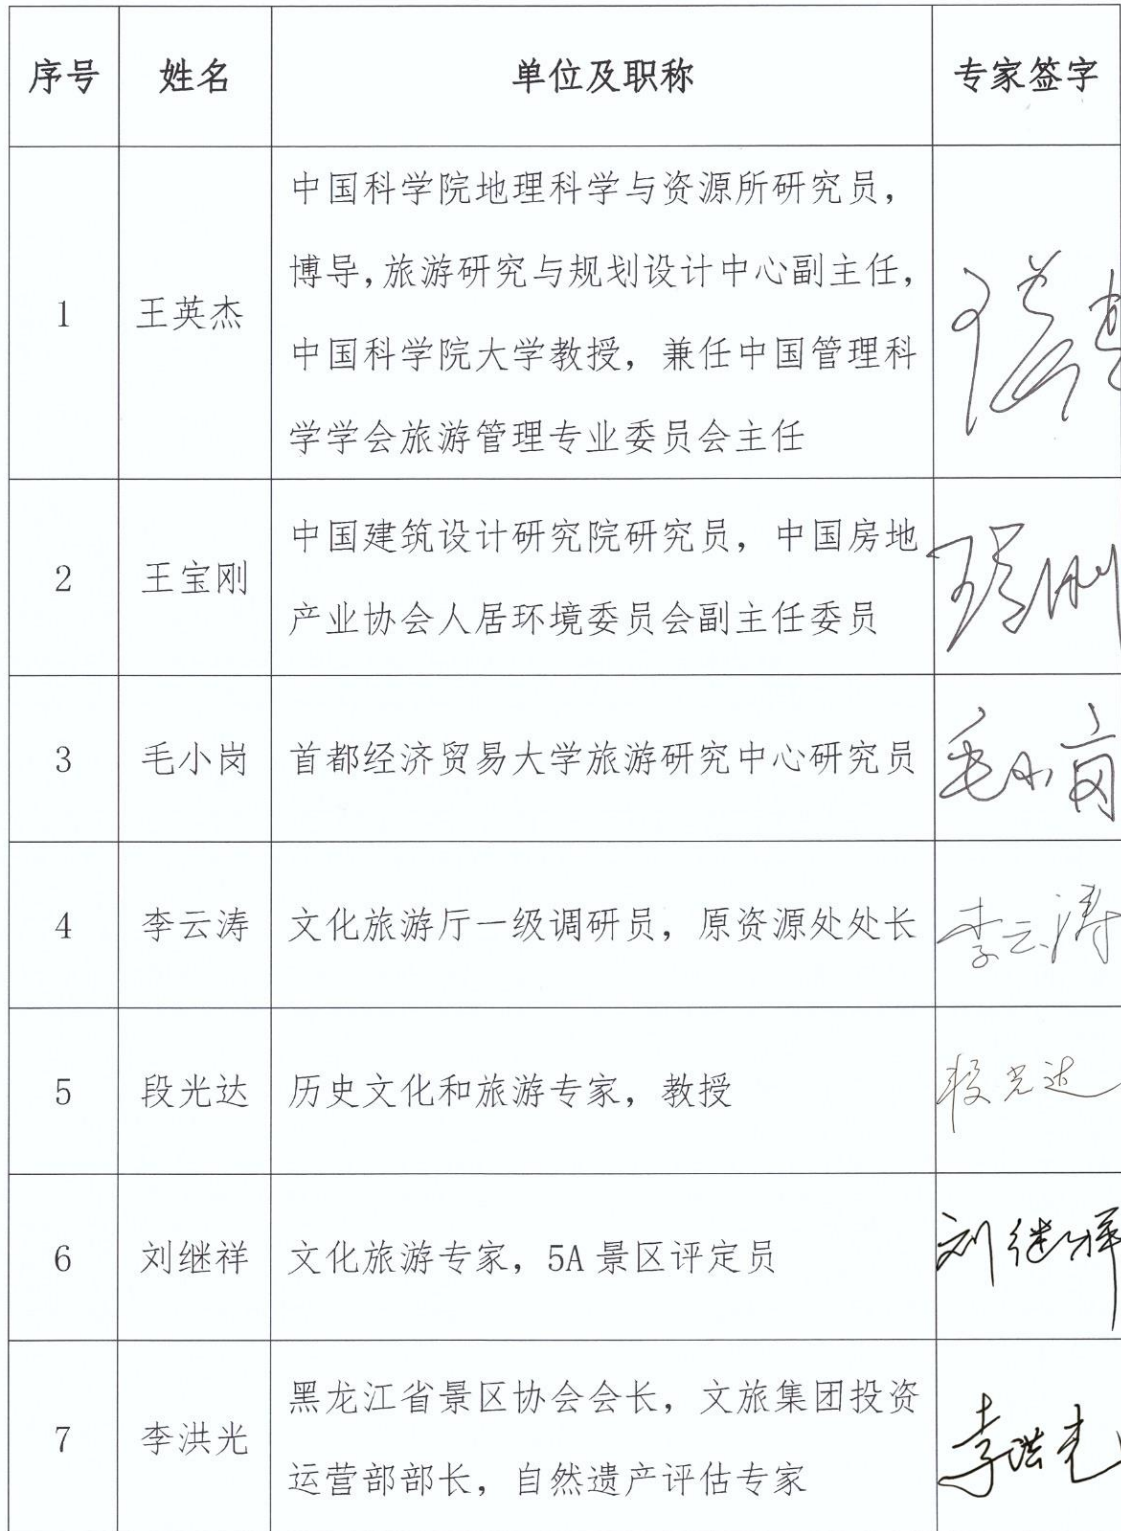 序号 姓名 单位及职称 专家签字
中国科学院地理科学与资源所研究员，
博导，旅游研究与规划设计中心副主任，
1 王英杰
中国科学院大学教授，兼任中国管理科
学学会旅游管理专业委员会主任
王英杰
中国建筑设计研究院研究员，中国房地
2 王宝刚
产业协会人居环境委员会副主任委员
王宝刚
3 毛小岗 首都经济贸易大学旅游研究中心研究员 毛小岗
4 李云涛 文化旅游厅一级调研员，原资源处处长 李云涛
5 段光达 历史文化和旅游专家，教授 段光达
6 刘继祥 文化旅游专家，5A景区评定员 刘继祥
黑龙江省景区协会会长，文旅集团投资
7 李洪光
运营部部长，自然遗产评估专家
李洪光